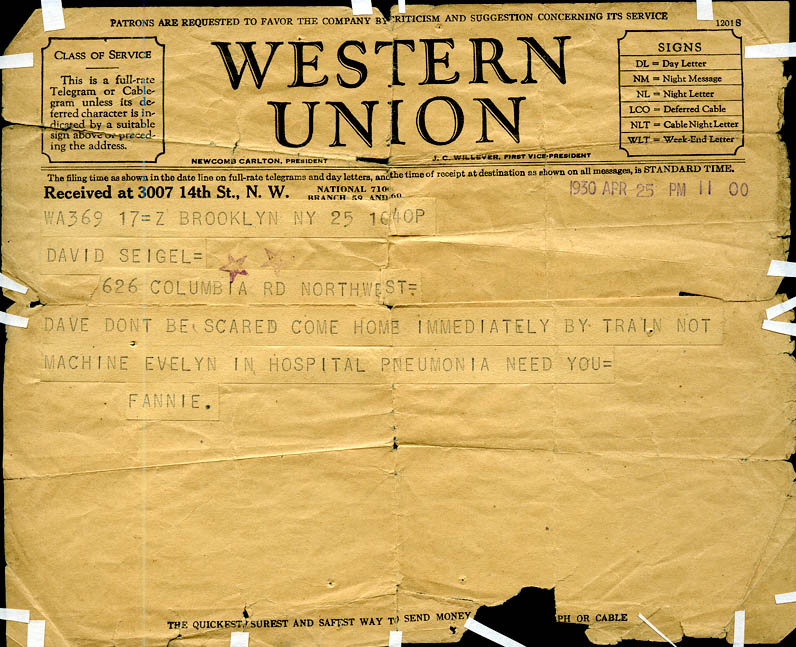 PATRONS ARE REQUESTED TO FAVOR THE COMPANY BY CRITICISM AND SUGGESTION CONCERNING ITS SERVICE
1201S
CLASS OF SERVICE
This is a full-rate
Telegram or Cable-
gram unless its de-
ferred character is in-
dicated by a suitable
sign above or preced-
ing the address.
WESTERN
UNION
NEWCOMB CARLTON, PRESIDENT
J. C. WILLEVER, FIRST VICE-PRESIDENT
SIGNS
DL = Day Letter
NM = Night Message
NL = Night Letter
LCO = Deferred Cable
NLT = Cable Night Letter
WLT = Week-End Letter
The filing time as shown in the date line on full-rate telegrams and day letters, and the time of receipt at destination as shown on all messages, is STANDARD TIME.
Received at 3007 14th St., N. W.
NATIONAL 710
BRANCH 59 AND 60
1930 APR 25 PM 11 00
WA369 17=Z BROOKLYN NY 25 1040P
DAVID SEIGEL=
626 COLUMBIA RD NORTHWEST=
DAVE DONT BE SCARED COME HOME IMMEDIATELY BY TRAIN NOT
MACHINE EVELYN IN HOSPITAL PNEUMONIA NEED YOU=
FANNIE.
THE QUICKEST, SUREST AND SAFEST WAY TO SEND MONEY PH OR CABLE